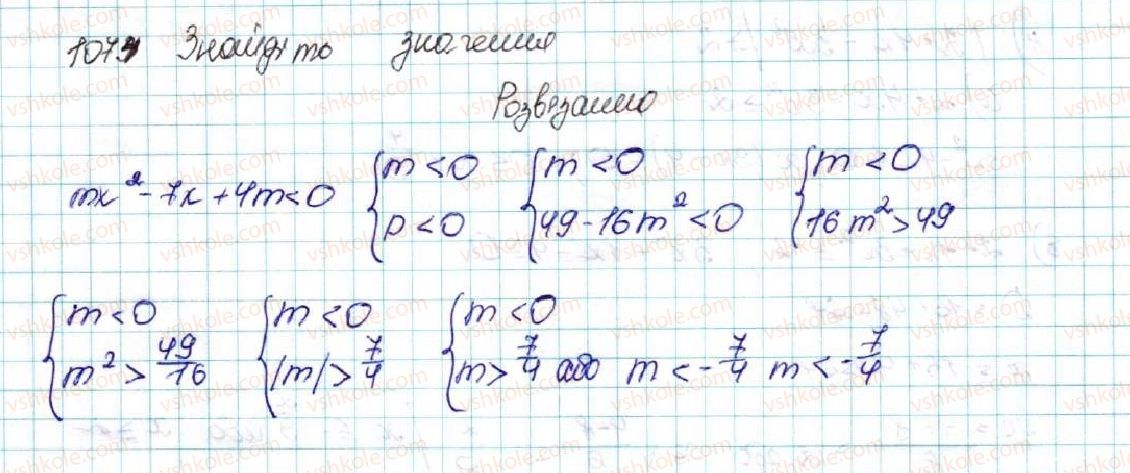 1079 Знайдіть значення
Розв'язання
mx² - 7x + 4m < 0 { m < 0 D < 0 { m < 0 49 - 16m² < 0 { m < 0 16m² > 49
{ m < 0 m² > 49/16 { m < 0 |m| > 7/4 { m < 0 m > 7/4 або m < -7/4 m < -7/4
vshkole.com